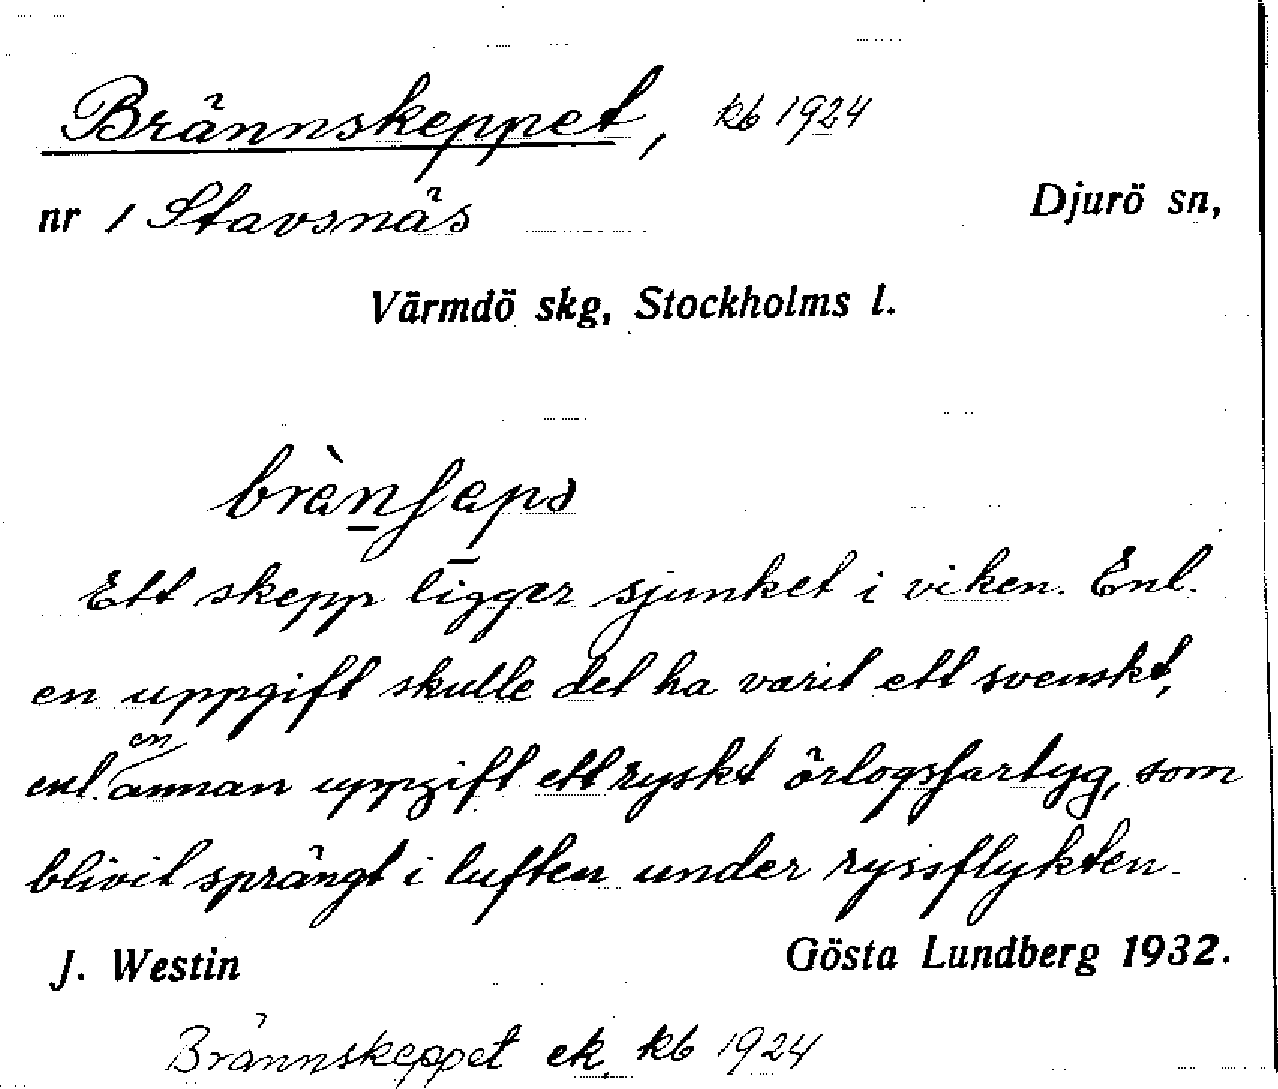 Brännskeppet, kb 1924
nr 1 Stavsnäs Djurö sn,
Värmdö skg, Stockholms l.
Ett skepp ligger sjunket i viken. Enl.
en uppgift skulle det ha varit ett svenskt,
enl. en annan uppgift ett ryskt örlogsfartyg, som
blivit sprängt i luften under ryssflykten.
J. Westin Gösta Lundberg 1932.
Brännskeppet ek. kb 1924